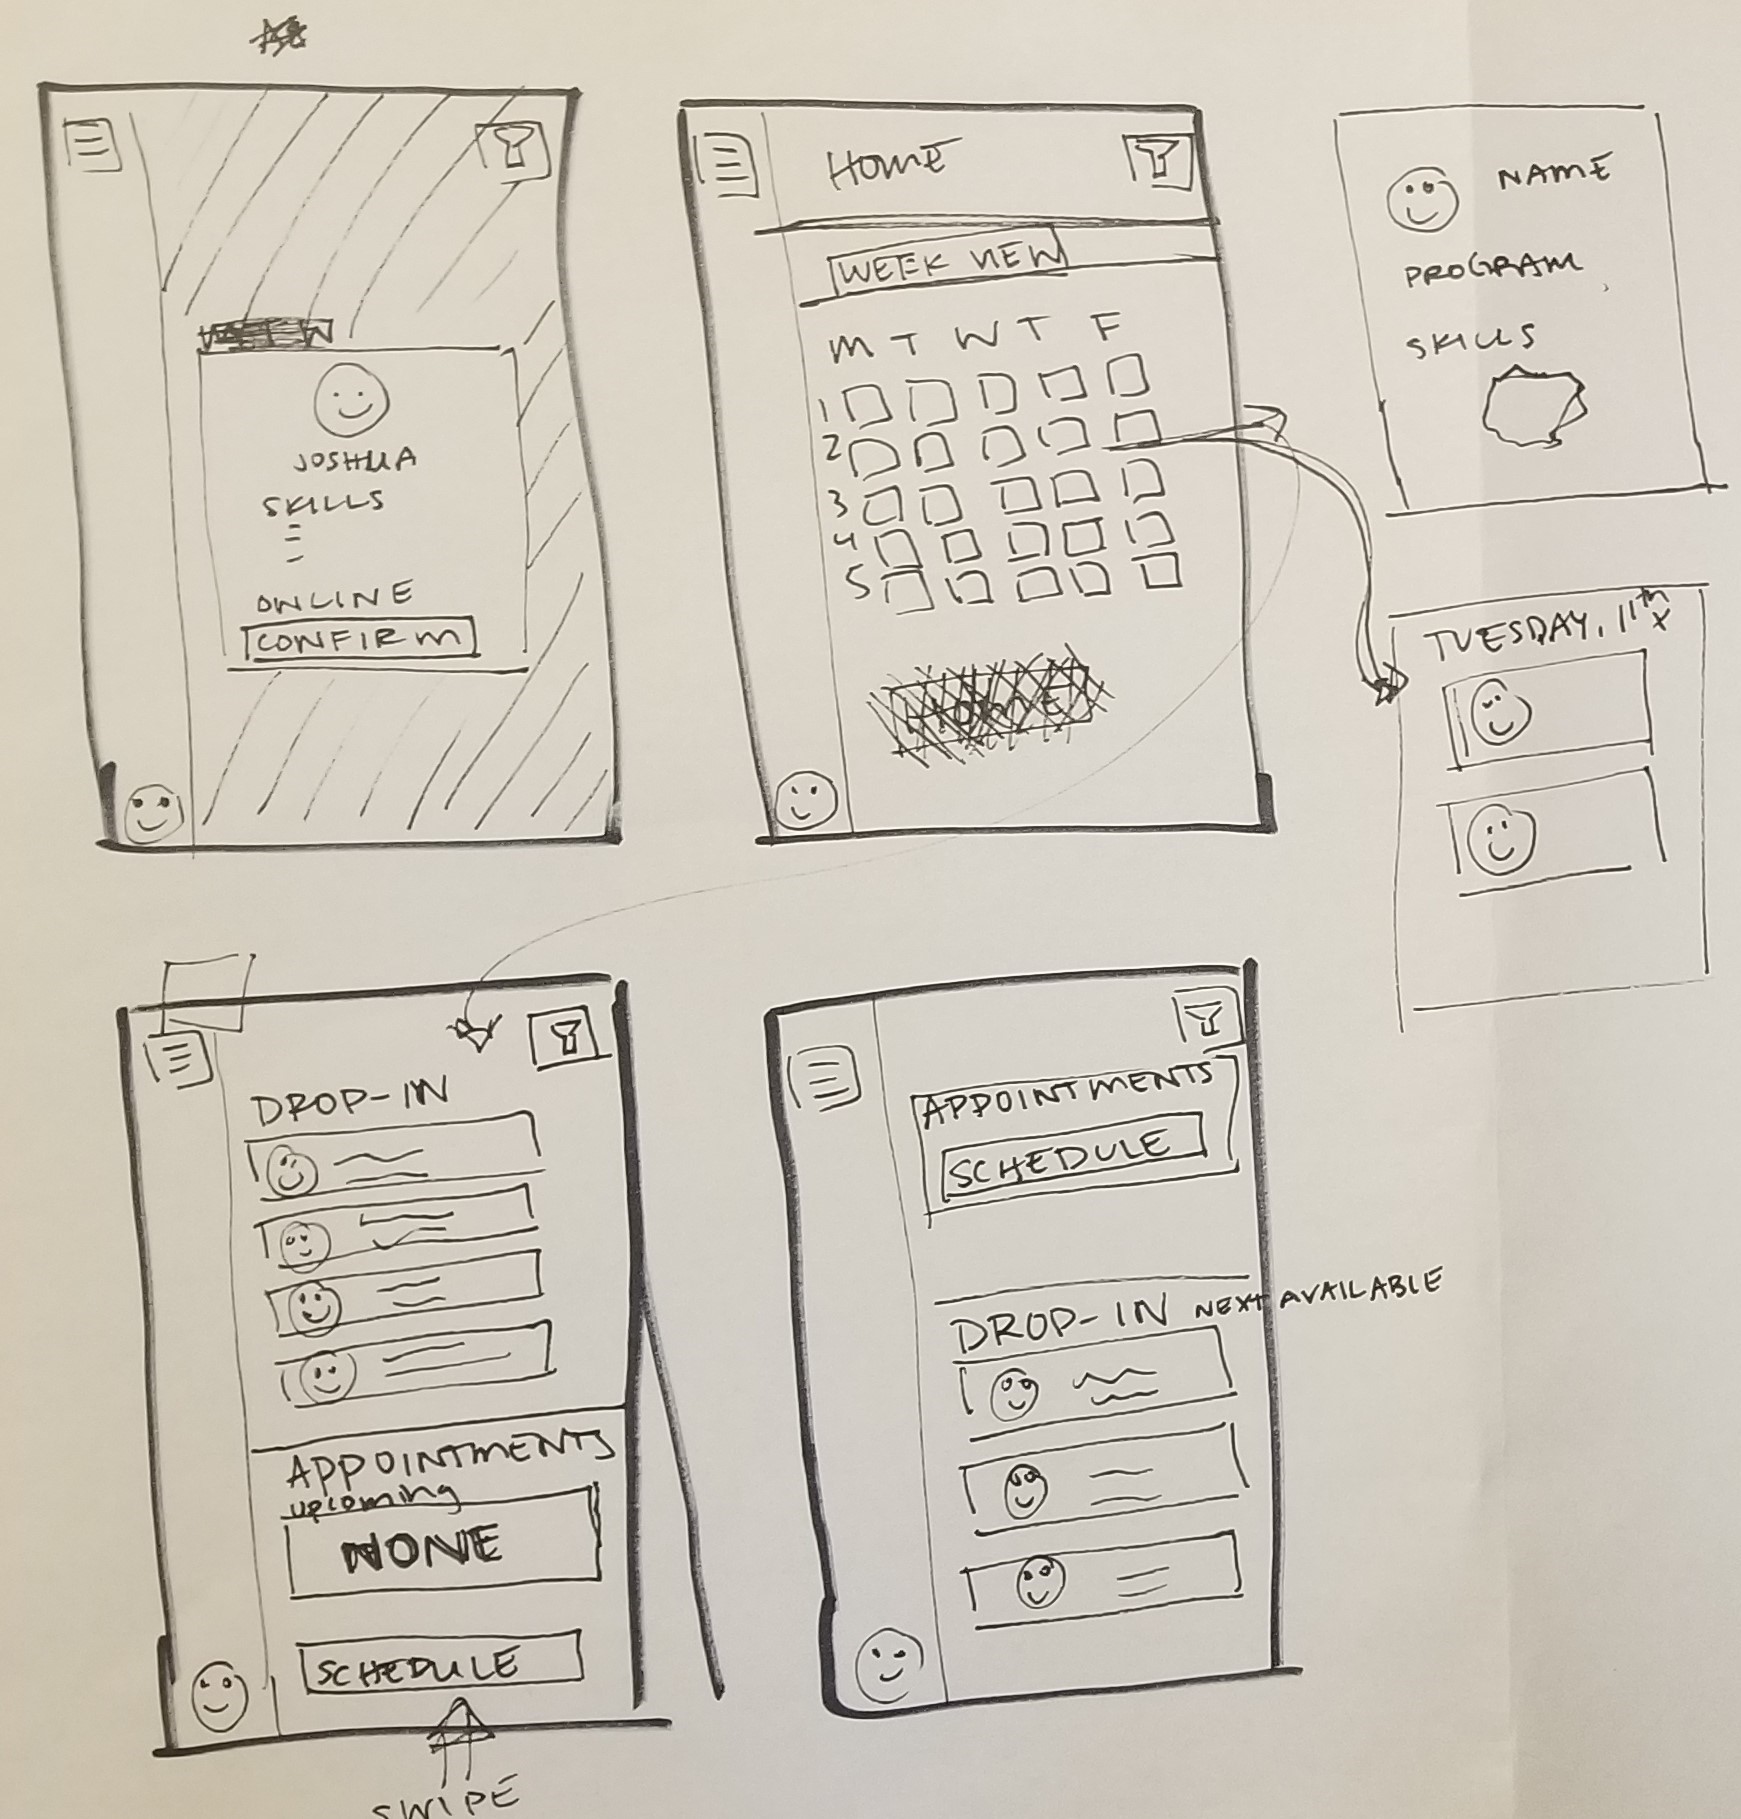 JOSHUA
SKILLS
ONLINE
CONFIRM
HOME
WEEK VIEW
M T W T F
1
2
3
4
5
HOME
NAME
PROGRAM
SKILLS
TUESDAY, 11th X
DROP-IN
APPOINTMENTS
upcoming
NONE
SCHEDULE
SWIPE
APPOINTMENTS
SCHEDULE
DROP-IN NEXT AVAILABLE